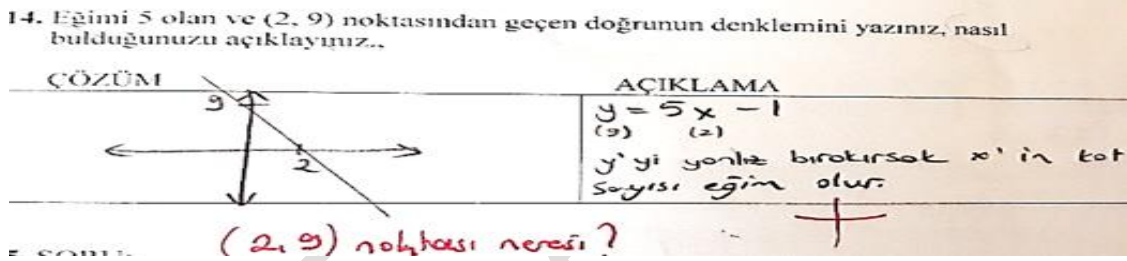 14. Eğimi 5 olan ve (2, 9) noktasından geçen doğrunun denklemini yazınız, nasıl
bulduğunuzu açıklayınız..,
ÇÖZÜM
AÇIKLAMA
9
2
y = 5x - 1
(9) (2)
y'yi yanlız bırakırsak x'in kat
sayısı eğim olur.
(2,9) noktası neresi?